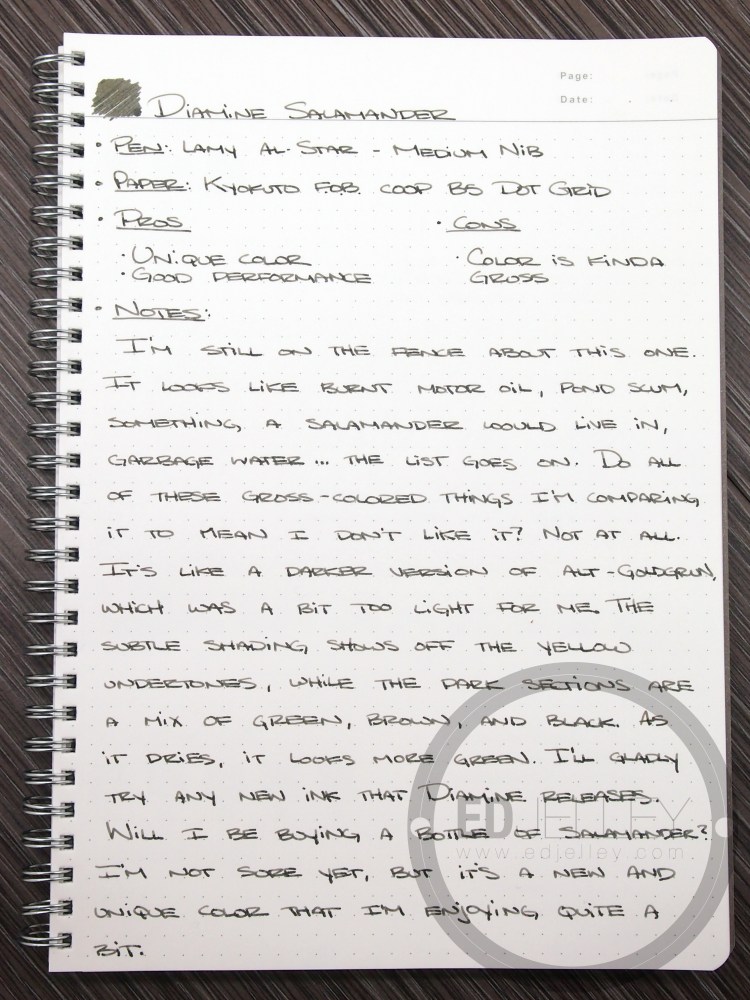 Page:
Date:
DIAMINE SALAMANDER
• PEN: LAMY AL-STAR - MEDIUM NIB
• PAPER: KYOKUTO F.O.B. COOP B5 DOT GRID
• PROS • CONS
· UNIQUE COLOR · COLOR IS KINDA
· GOOD PERFORMANCE GROSS
• NOTES:
I'M STILL ON THE FENCE ABOUT THIS ONE.
IT LOOKS LIKE BURNT MOTOR OIL, POND SCUM,
SOMETHING A SALAMANDER WOULD LIVE IN,
GARBAGE WATER... THE LIST GOES ON. DO ALL
OF THESE GROSS-COLORED THINGS I'M COMPARING
IT TO MEAN I DON'T LIKE IT? NOT AT ALL.
IT'S LIKE A DARKER VERSION OF ALT-GOLDGRUN,
WHICH WAS A BIT TOO LIGHT FOR ME. THE
SUBTLE SHADING SHOWS OFF THE YELLOW
UNDERTONES, WHILE THE DARK SECTIONS ARE
A MIX OF GREEN, BROWN, AND BLACK. AS
IT DRIES, IT LOOKS MORE GREEN. I'LL GLADLY
TRY ANY NEW INK THAT DIAMINE RELEASES.
WILL I BE BUYING A BOTTLE OF SALAMANDER?
I'M NOT SURE YET, BUT IT'S A NEW AND
UNIQUE COLOR THAT I'M ENJOYING QUITE A
BIT.
ED JELLEY
www.edjelley.com